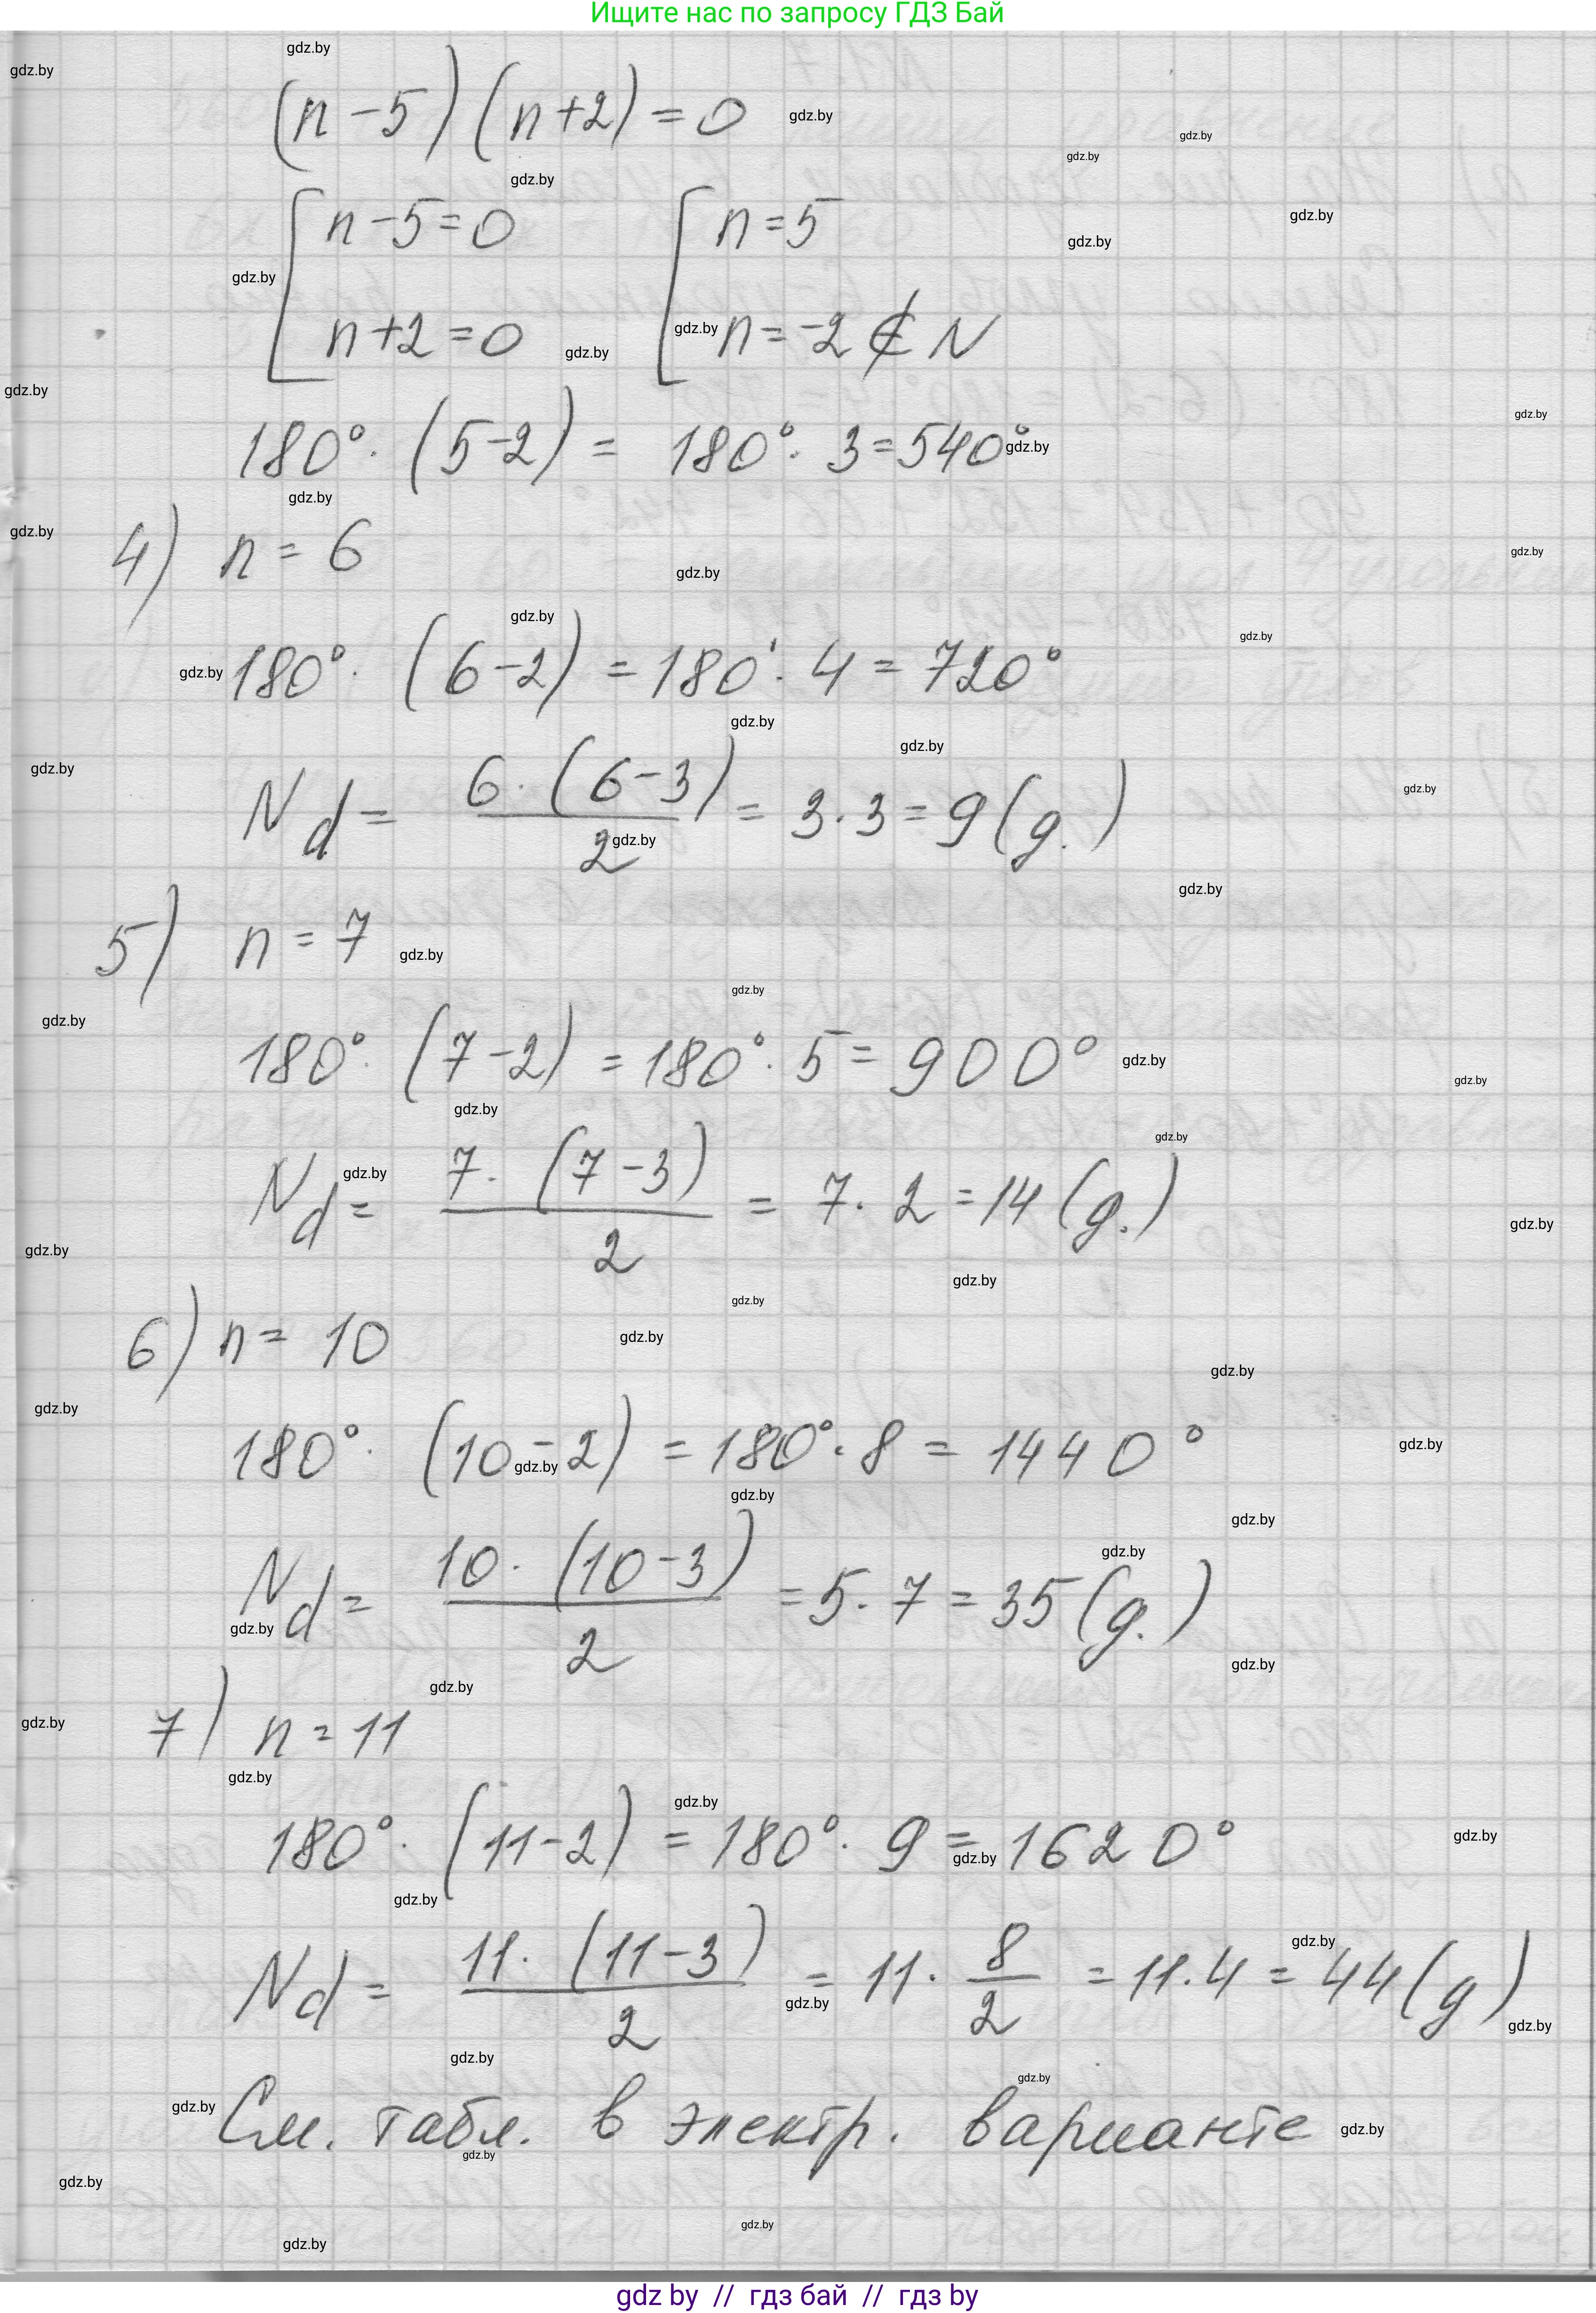 Ищите нас по запросу ГДЗ Бай
(n-5)(n+2)=0
[n-5=0 [n=5
n+2=0 n=-2 ∉ N
180°·(5-2)= 180°·3=540°
4) n=6
180°·(6-2)=180°·4=720°
Nd= 6·(6-3)/2 = 3·3=9(g.)
5) n=7
180°·(7-2)=180°·5=900°
Nd= 7·(7-3)/2 = 7·2=14(g.)
6) n=10
180°·(10-2)=180°·8=1440°
Nd= 10·(10-3)/2 =5·7=35(g.)
7) n=11
180°·(11-2)=180°·9=1620°
Nd= 11·(11-3)/2 = 11·8/2 =11·4=44(g)
См. табл. в электр. варианте
gdz by // гдз бай // гдз by